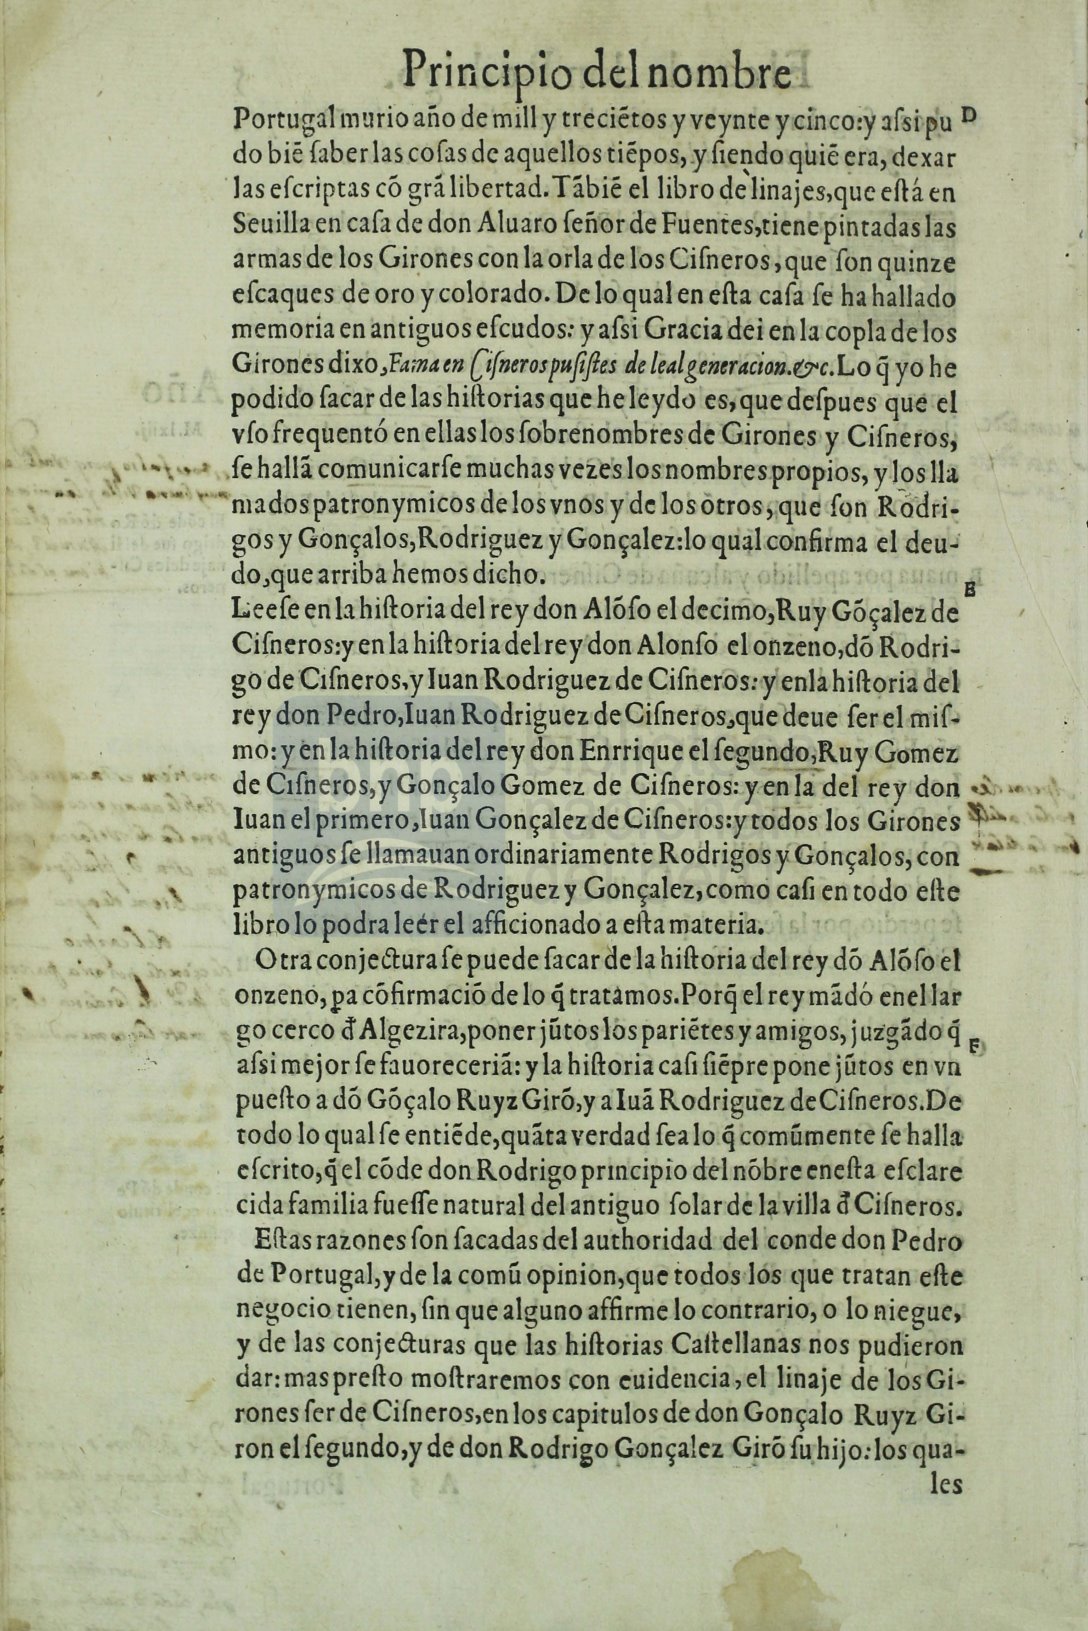 Principio del nombre
Portugal murio año de mill y treciẽtos y veynte y cinco: y aſsi pu D
do biẽ ſaber las coſas de aquellos tiẽpos, y ſiendo quiẽ era, dexar
las eſcriptas cõ grã libertad. Tãbiẽ el libro de linajes, que eſtá en
Seuilla en caſa de don Aluaro ſeñor de Fuentes, tiene pintadas las
armas de los Girones con la orla de los Ciſneros, que ſon quinze
eſcaques de oro y colorado. De lo qual en eſta caſa ſe ha hallado
memoria en antiguos eſcudos: y aſsi Gracia dei en la copla de los
Girones dixo, Fama en Ciſneros puſiſtes de leal generacion. &c. Lo q̃ yo he
podido ſacar de las hiſtorias que he leydo es, que deſpues que el
vſo frequentó en ellas los ſobrenombres de Girones y Ciſneros,
ſe hallã comunicarſe muchas vezes los nombres propios, y los lla
mados patronymicos de los vnos y de los otros, que ſon Rodri-
gos y Gonçalos, Rodriguez y Gonçalez: lo qual confirma el deu-
do, que arriba hemos dicho.
E
Leeſe en la hiſtoria del rey don Alõſo el decimo, Ruy Gõçalez de
Ciſneros: y en la hiſtoria del rey don Alonſo el onzeno, dõ Rodri-
go de Ciſneros, y Iuan Rodriguez de Ciſneros: y enla hiſtoria del
rey don Pedro, Iuan Rodriguez de Ciſneros, que deue ſer el miſ-
mo: y en la hiſtoria del rey don Enrrique el ſegundo, Ruy Gomez
de Ciſneros, y Gonçalo Gomez de Ciſneros: y en la del rey don
Iuan el primero, Iuan Gonçalez de Ciſneros: y todos los Girones
antiguos ſe llamauan ordinariamente Rodrigos y Gonçalos, con
patronymicos de Rodriguez y Gonçalez, como caſi en todo eſte
libro lo podra leér el afficionado a eſta materia.
Otra conjectura ſe puede ſacar de la hiſtoria del rey dõ Alõſo el
onzeno, ꝑa cõfirmaciõ de lo q̃ tratamos. Porq̃ el rey mãdó enel lar
go cerco đ Algezira, poner jũtos los pariẽtes y amigos, juzgãdo q̃ F
aſsi mejor ſe fauoreceriã: y la hiſtoria caſi ſiẽpre pone jũtos en vn
pueſto a dõ Gõçalo Ruyz Girõ, y a Iuã Rodriguez de Ciſneros. De
todo lo qual ſe entiẽde, quãta verdad ſea lo q̃ comũmente ſe halla
eſcrito, q̃ el cõde don Rodrigo principio del nõbre eneſta eſclare
cida familia fueſſe natural del antiguo ſolar de la villa đ Ciſneros.
Eſtas razones ſon ſacadas del authoridad del conde don Pedro
de Portugal, y de la comũ opinion, que todos los que tratan eſte
negocio tienen, ſin que alguno affirme lo contrario, o lo niegue,
y de las conjecturas que las hiſtorias Caſtellanas nos pudieron
dar: mas preſto moſtraremos con euidencia, el linaje de los Gi-
rones ſer de Ciſneros, en los capitulos de don Gonçalo Ruyz Gi-
ron el ſegundo, y de don Rodrigo Gonçalez Girõ ſu hijo: los qua-
les